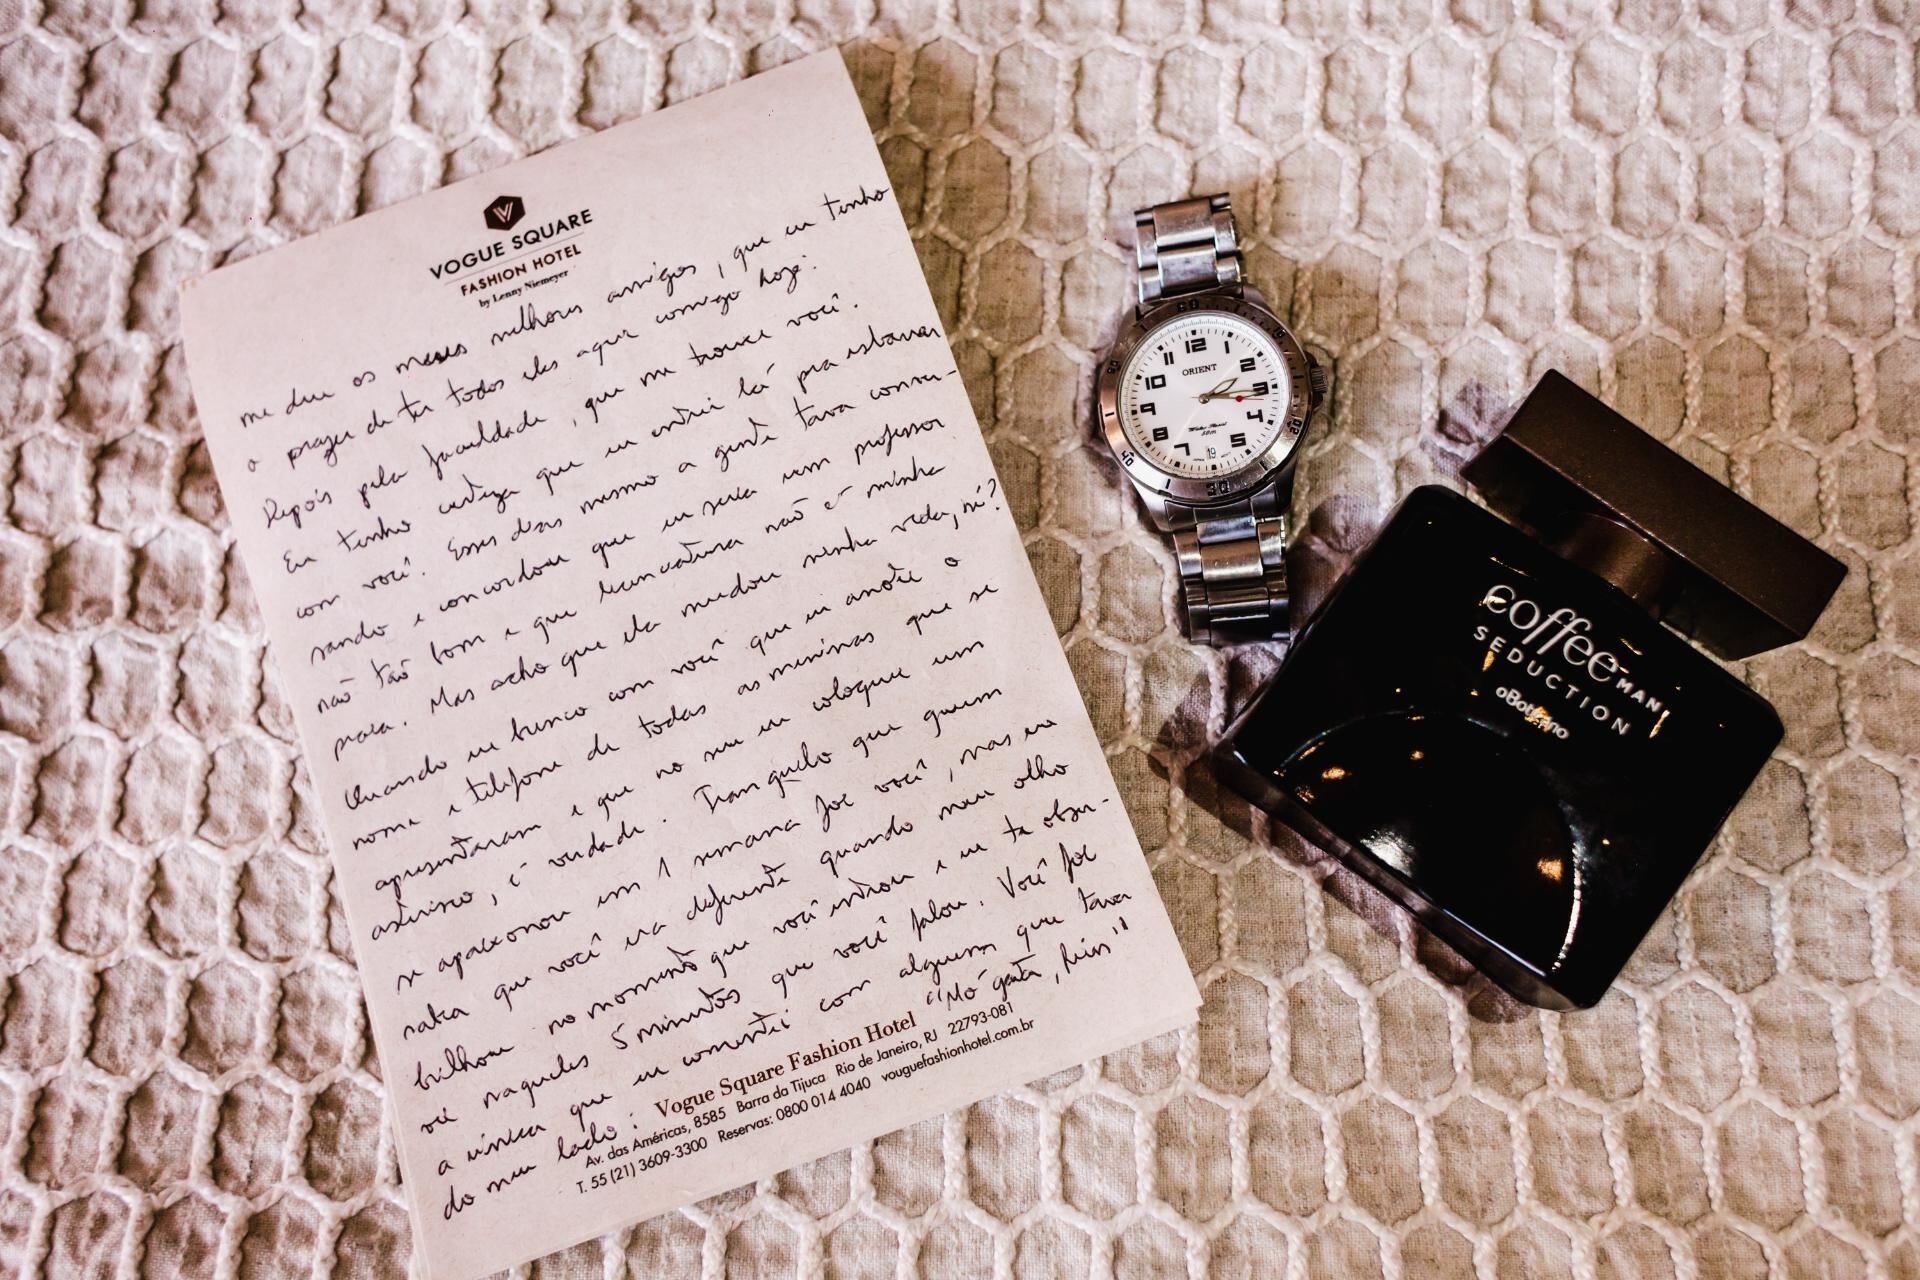 VOGUE SQUARE
FASHION HOTEL
by Lenny Niemeyer
me deu os meus melhores amigos, que eu tenho
o prazer de ter todos eles aqui comigo hoje.
Depois pela faculdade, que me trouxe você.
Eu tenho certeza que eu entrei lá pra esbarrar
com você. Esses dias mesmo a gente tava conver-
sando e concordou que eu seria um professor
não tão bom e que licenciatura não é minha
praia. Mas acho que ela mudou minha vida, né?
Quando eu brinco com você que eu anotei o
nome e telefone de todas as meninas que se
apresentaram e que no seu eu coloquei um
asterisco, é verdade. Tranquilo que quem
se apaixonou em 1 semana foi você, mas eu
sabia que você era diferente quando meu olho
brilhou no momento que você entrou e eu te obser-
vei naqueles 5 minutos que você falou. Você foi
a única que eu comentei com alguém que tava
do meu lado: "Mó gata, hein"
Vogue Square Fashion Hotel
Av. das Américas, 8585 Barra da Tijuca Rio de Janeiro, RJ 22793-081
T. 55 (21) 3609-3300 Reservas: 0800 014 4040 voguefashionhotel.com.br
ORIENT
12
1
2
3
4
5
7
8
9
10
Water Resist
50m
19
20
30
40
coffee MAN
SEDUCTION
oBoticário